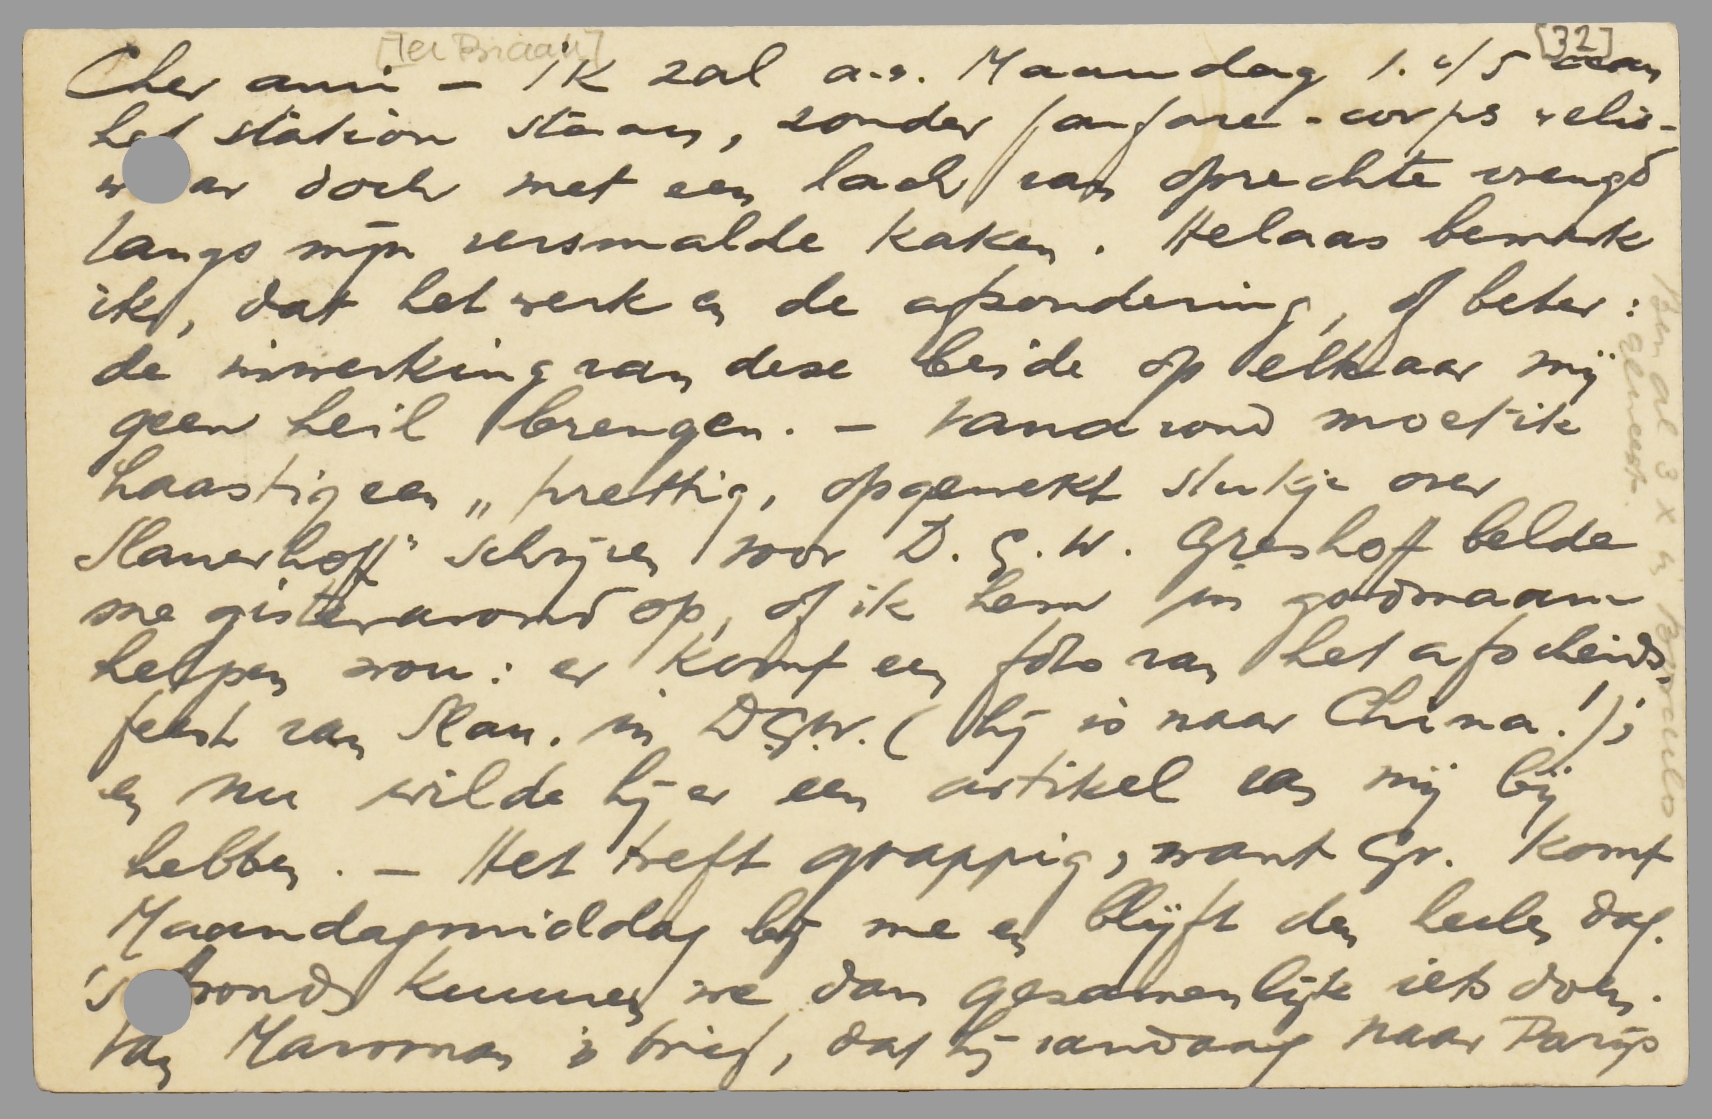 [Ter Braak]
[32]
Cher ami – Ik zal a.s. Maandag 1.45 aan
het station staan, zonder fanfare-corps welis-
waar doch met een lach van oprechte vreugd
langs mijn versmalde kaken. Helaas bemerk
ik, dat het werk en de afzondering, of beter:
de inwerking van deze beide op elkaar mij
geen heil brengen. – Vanavond moet ik
haastig een „prettig, opgewekt stukje over
Slauerhoff” schrijven voor D.G.W. Greshoff belde
me gisteravond op, of ik hem in godsnaam
helpen wou: er komt een foto van het afscheids-
feest van Slau. in D.G.W. (hij is naar China!);
en nu wilde hij er een artikel van mij bij
hebben. – Het treft grappig, want Gr. komt
Maandagmiddag bij me en blijft den heelen dag.
's Avonds kunnen we dan gezamenlijk iets doen.
Van Marsman 'n brief, dat hij vandaag naar Parijs
Ben al 3 x in Borculo
geweest.